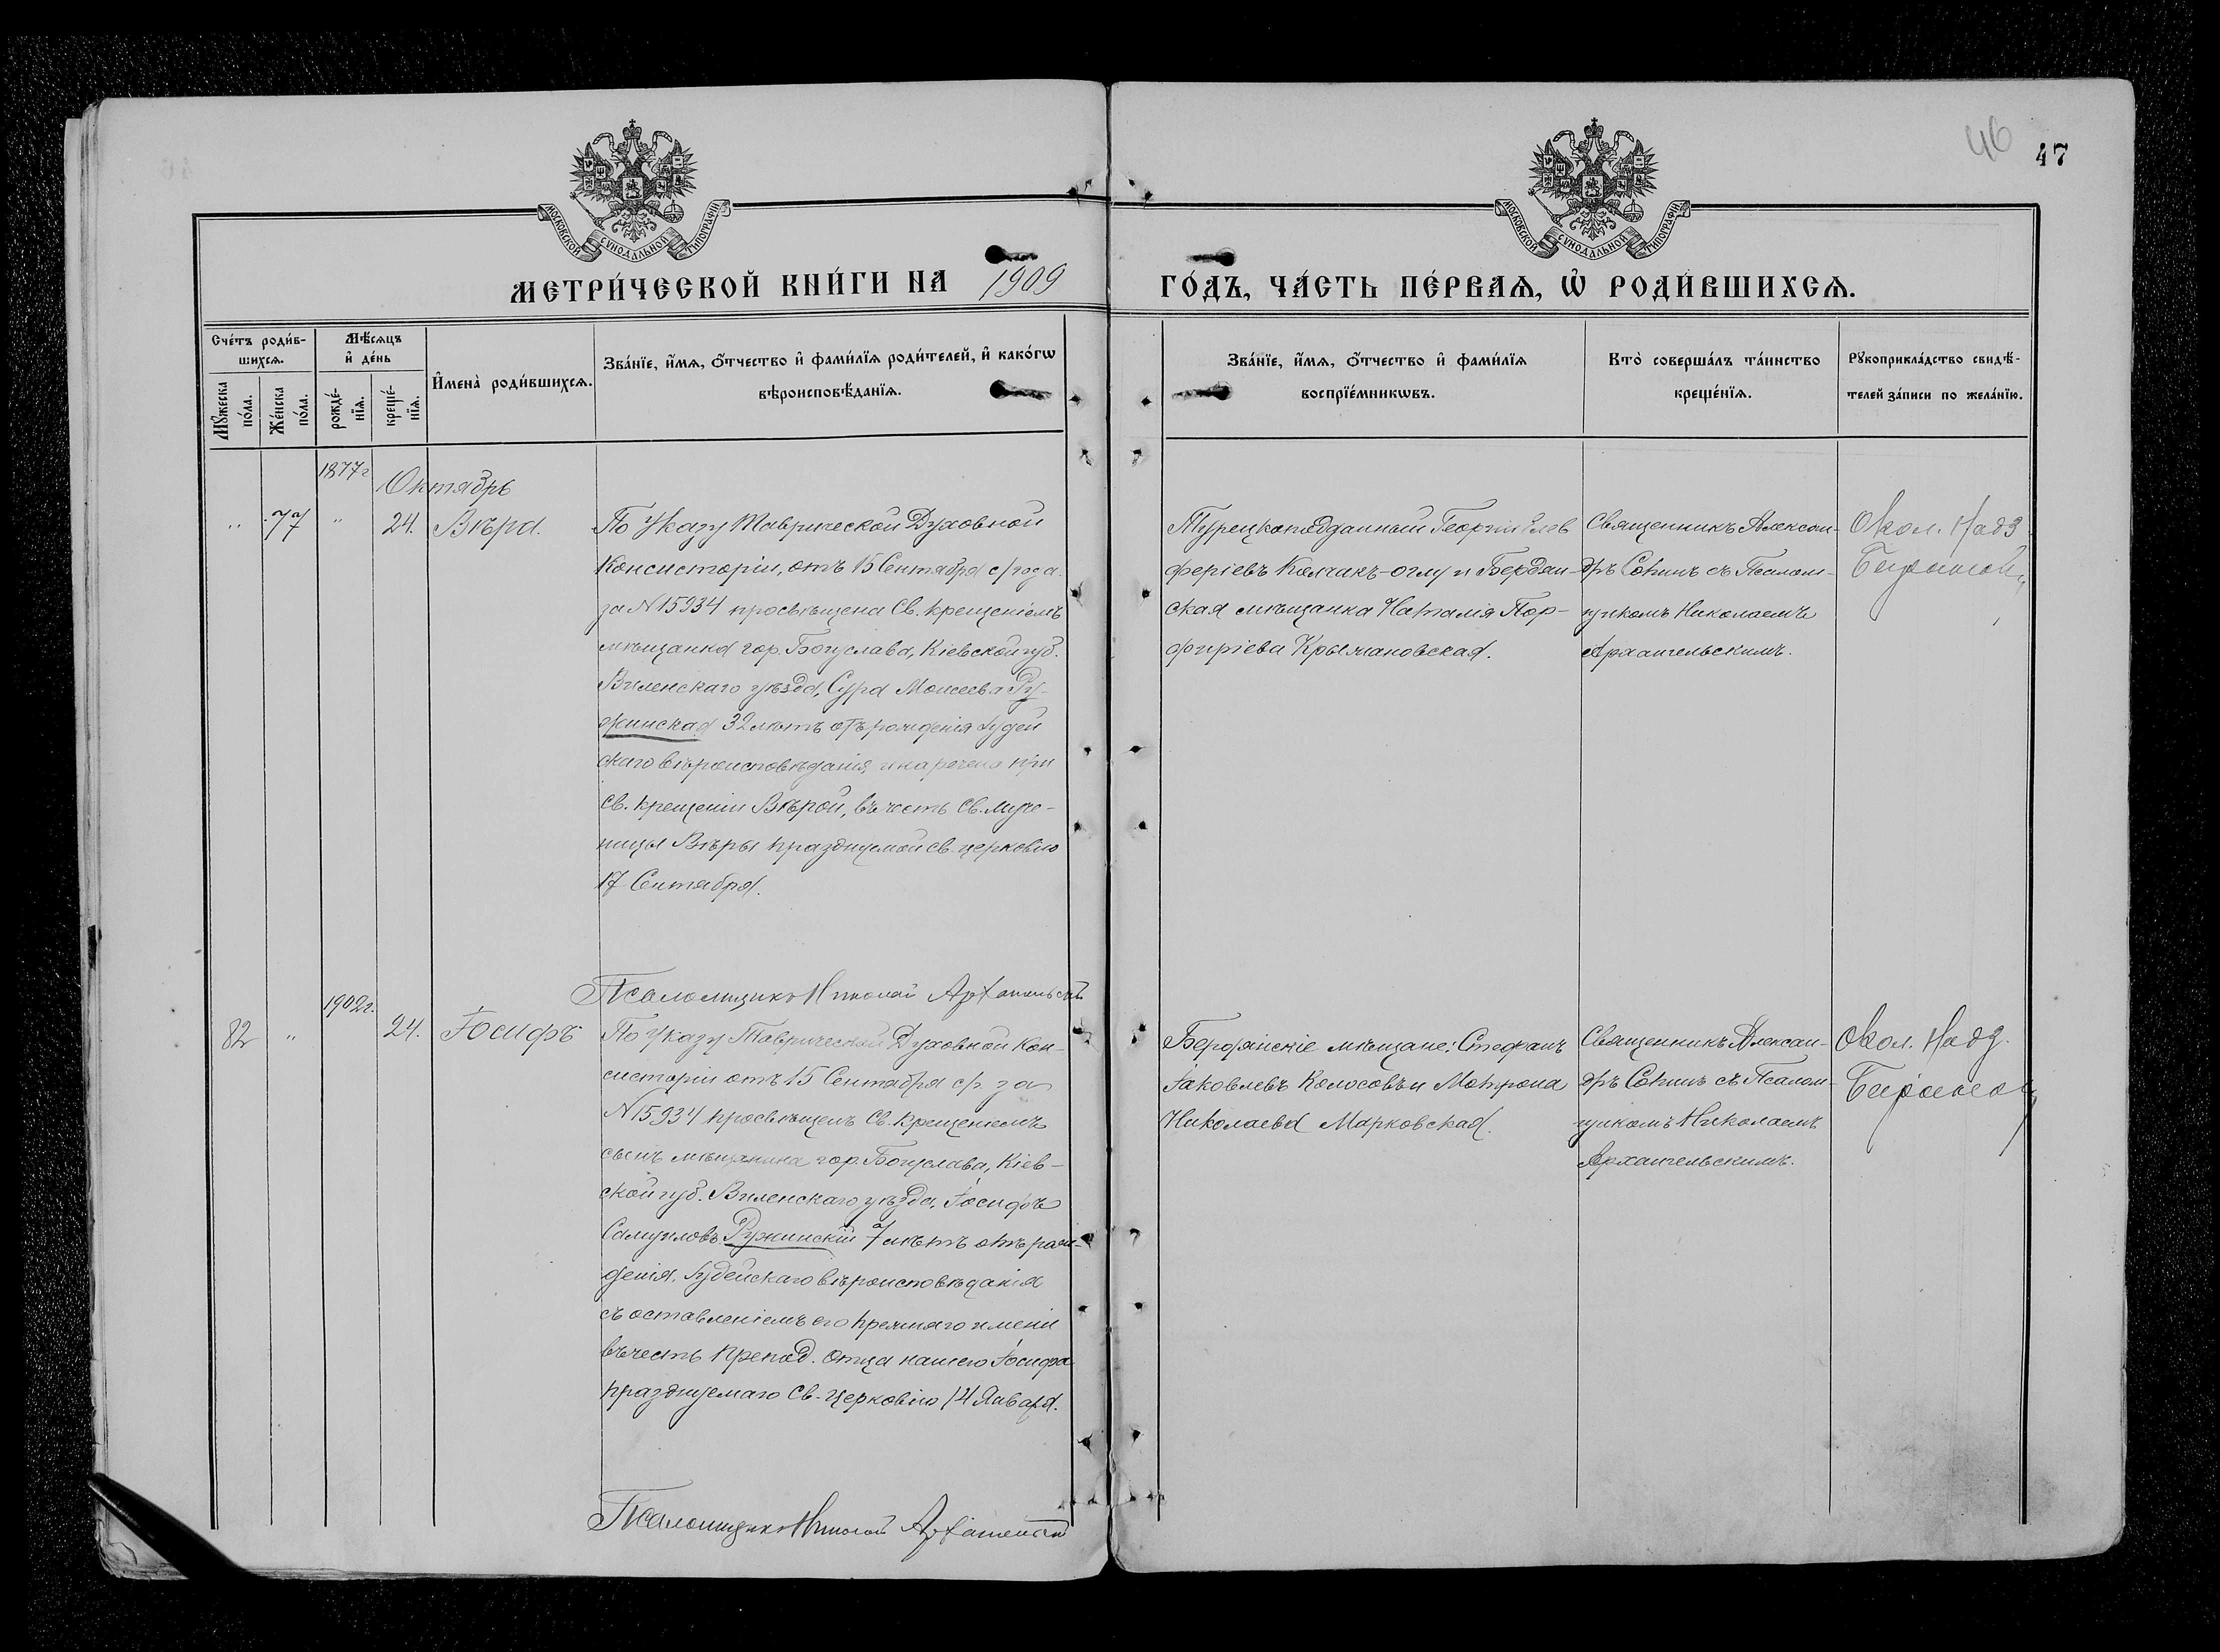 46
47
МОСКОВСКОЙ СѴНОДАЛЬНОЙ ТИПОГРАФІИ
МОСКОВСКОЙ СѴНОДАЛЬНОЙ ТИПОГРАФІИ
МЕТРИ́ЧЕСКОЙ КНИ́ГИ НА 1909 ГО́ДЪ, ЧА́СТЬ ПЕ́РВАѦ, Ѽ РОДИ́ВШИХСѦ.
Сче́тъ роди́в-
шихсѧ.
Мꙋжеска
по́ла.
Же́нска
по́ла.
Мѣ́сѧцъ
и҆ де́нь
рожде́-
нїѧ.
креще́-
нїѧ.
И҆мена̀ роди́вшихсѧ.
Зва́нїе, и҆́мѧ, о҆́тчество и҆ фами́лїѧ роди́телей, и҆ како́гѡ
вѣроисповѣ́данїѧ.
Зва́нїе, и҆́мѧ, о҆́тчество и҆ фами́лїѧ
воспрїе́мникѡвъ.
Кто̀ соверша́лъ та́инство
креще́нїѧ.
Рꙋкоприкла́дство свидѣ́-
телей за́писи по жела́нїю.
1877 г
Октябрь
" 77 " 24. Вѣра.
По Указу Таврической Духовной
Консисторіи, отъ 15 Сентября с/года
за N 15934 просвѣщена Св. крещеніемъ
мѣщанка гор. Богуслава, Кіевской губ.
Виленскаго уѣзда, Сура Моисеева Ру-
жинская 32 лѣтъ отъ рожденія Іудей
скаго вѣроисповѣданія и наречена при
св. крещеніи Вѣрой, въ честь Св. муче-
ницы Вѣры празднуемой св. церковію
17 Сентября.
Псаломщикъ Николай Архангельскій
Турецкоподданный Георгій Елев
феріевъ Колчакъ-оглу и Бердян-
ская мѣщанка Наталія Пор-
фиріева Крыжановская.
Священникъ Алексан-
дръ Сопинъ съ Псалом-
щикомъ Николаемъ
Архангельскимъ.
Окол. Надз
1902 г.
82 " 24. Іосифъ
По Указу Таврической Духовной Кон-
систоріи отъ 15 Сентября с/г за
N 15934 просвѣщенъ Св. Крещеніемъ
сынъ мѣщанина гор. Богуслава, Кіев-
ской губ. Виленскаго уѣзда, Іосифъ
Самуиловъ Ружинскій 7 лѣтъ отъ рож-
денія, Іудейскаго вѣроисповѣданія
съ оставленіемъ его прежняго имени
въ честь Препод. Отца нашего Іосифа
празднуемаго Св. Церковію 14 Января.
Псаломщикъ Николай Архангельскій
Бердянскіе мѣщане: Стефанъ
Іаковлевъ Колосовъ и Матрона
Николаева Марковская.
Священникъ Алексан-
дръ Сопинъ съ Псалом-
щикомъ Николаемъ
Архангельскимъ.
Окол. Надз.